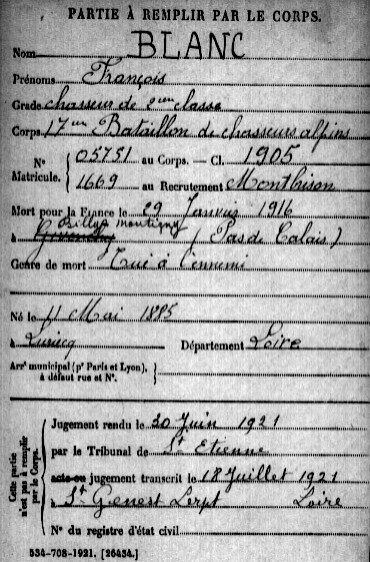 PARTIE À REMPLIR PAR LE CORPS.
Nom BLANC
Prénoms François
Grade chasseur de 2eme classe
Corps 17me Bataillon de chasseurs alpins
N° Matricule. { 05751 au Corps. — Cl. 1905
1669 au Recrutement Montbrison
Mort pour la France le 29 Janvier 1916
Billy montigny
à Givenchy (Pas de Calais)
Genre de mort Tué à l'ennemi
Né le 11 Mai 1885
à Luriecq Département Loire
Arrt municipal (pr Paris et Lyon), à défaut rue et N°. }
Cette partie n'est pas à remplir par le Corps.
Jugement rendu le 30 Juin 1921
par le Tribunal de St Etienne
acte ou jugement transcrit le 18 Juillet 1921
à St Genest Lerpt Loire
N° du registre d'état civil
534-708-1921. [26434.]